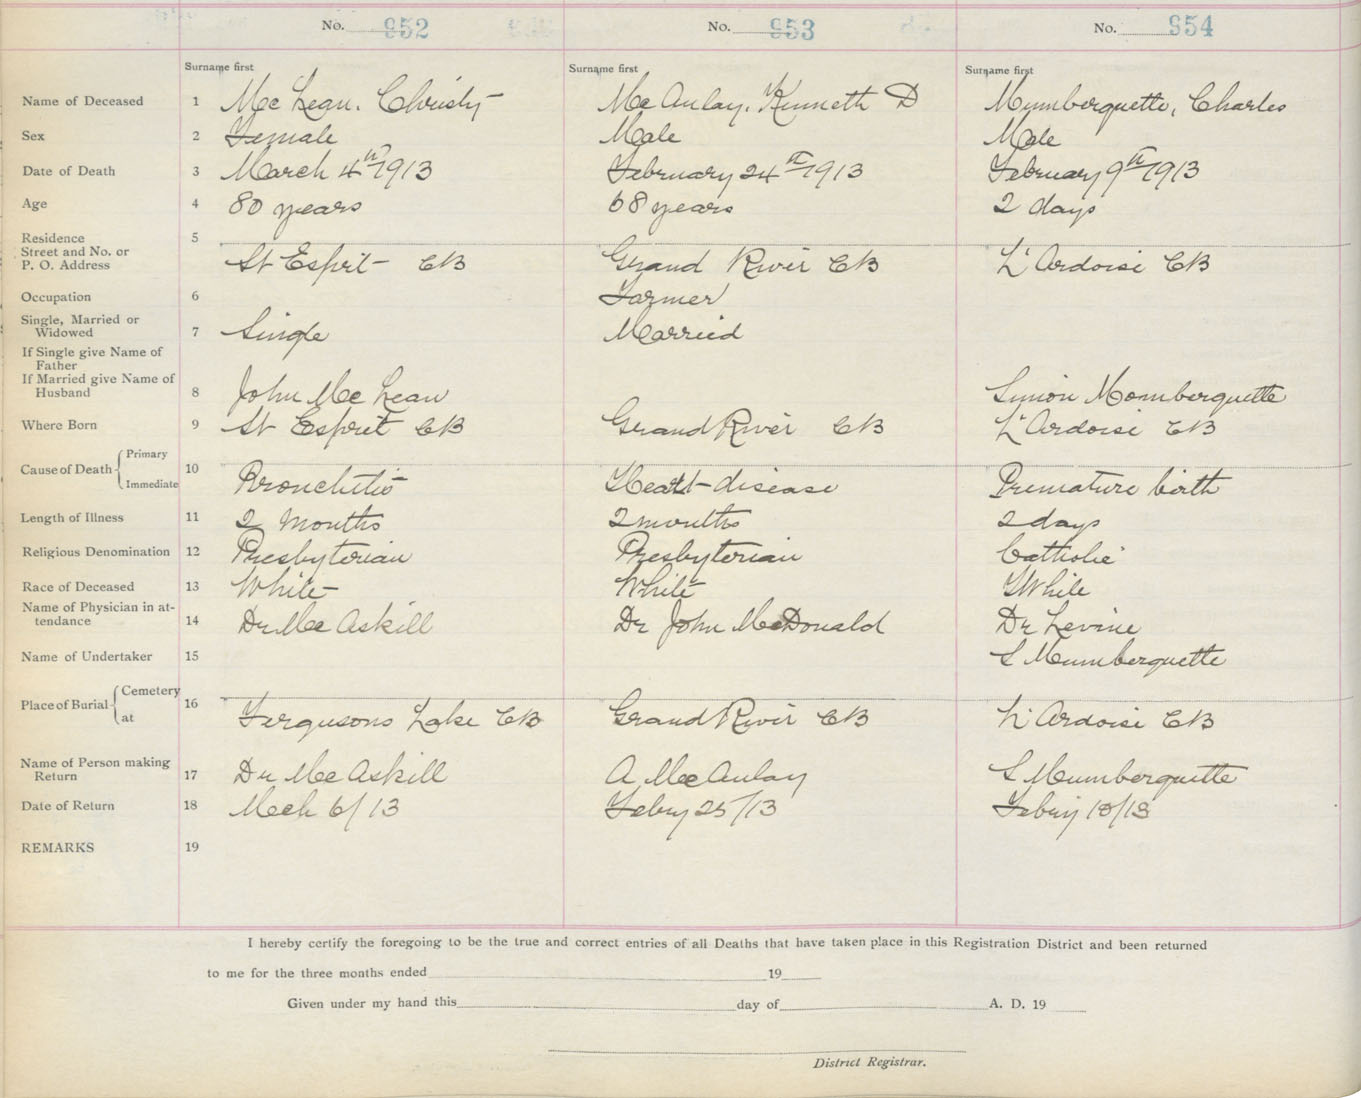 No. 952 No. 953 No. 954
Surname first Surname first Surname first
Name of Deceased 1 McLean, Christy McAulay, Kenneth D Mumberquette, Charles
Sex 2 Female Male Male
Date of Death 3 March 4th 1913 February 24th 1913 February 9th 1913
Age 4 80 years 68 years 2 days
Residence 5
Street and No. or
P. O. Address St Esprit CB Grand River CB L'Ardoise CB
Occupation 6 Farmer
Single, Married or
Widowed 7 Single Married
If Single give Name of
Father
If Married give Name of
Husband 8 John McLean Simon Momberquette
Where Born 9 St Esprit CB Grand River CB L'Ardoise CB
Cause of Death { Primary 10
Immediate Bronchitis Heart disease Premature birth
Length of Illness 11 2 Months 2 months 2 days
Religious Denomination 12 Presbyterian Presbyterian Catholic
Race of Deceased 13 White White White
Name of Physician in at-
tendance 14 Dr McAskill Dr John McDonald Dr Levine
Name of Undertaker 15 S Mumberquette
Place of Burial { Cemetery 16
at Fergusons Lake CB Grand River CB L'Ardoise CB
Name of Person making
Return 17 Dr McAskill A McAulay S Mumberquette
Date of Return 18 Mech 6/13 Febry 25/13 Febry 10/13
REMARKS 19
I hereby certify the foregoing to be the true and correct entries of all Deaths that have taken place in this Registration District and been returned
to me for the three months ended 19
Given under my hand this day of A. D. 19
District Registrar.